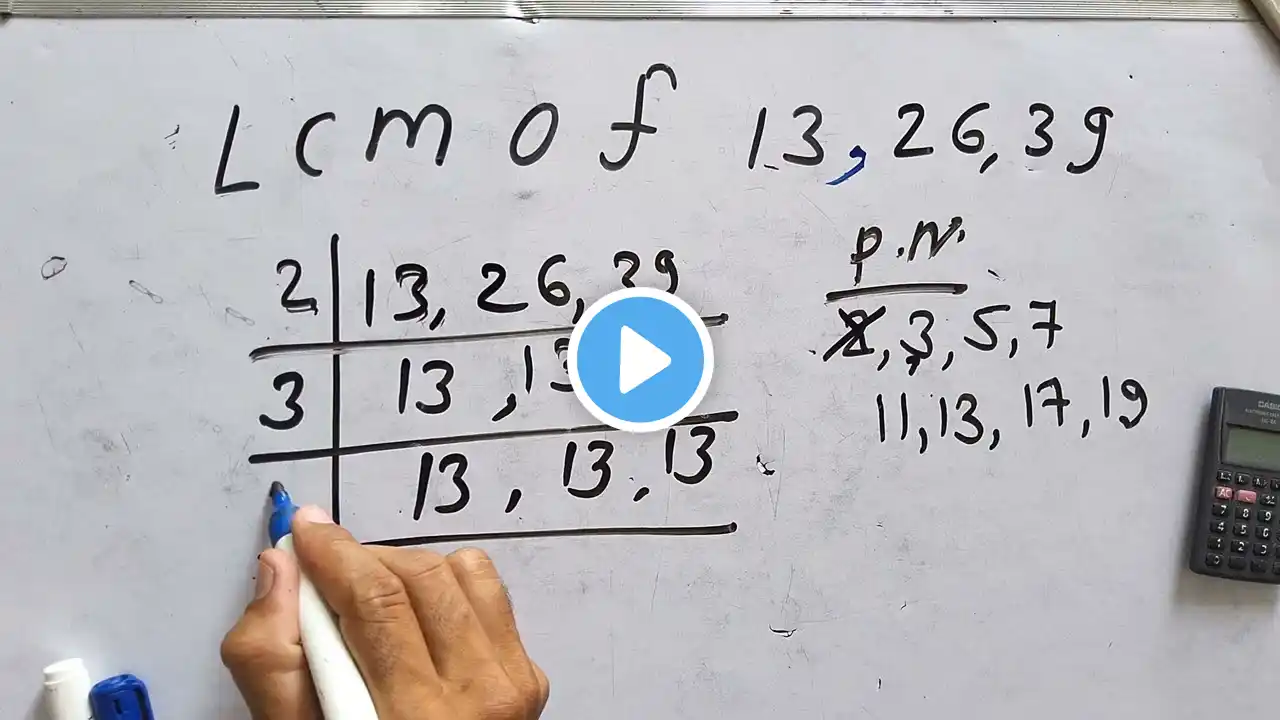 Lcm of 13, 26, 39
2 13, 26, 39
3 13, 13
13, 13, 13
P.N.
2, 3, 5, 7
11, 13, 17, 19
CASIO
AC
7 8 9
4 5 6
1 2 3